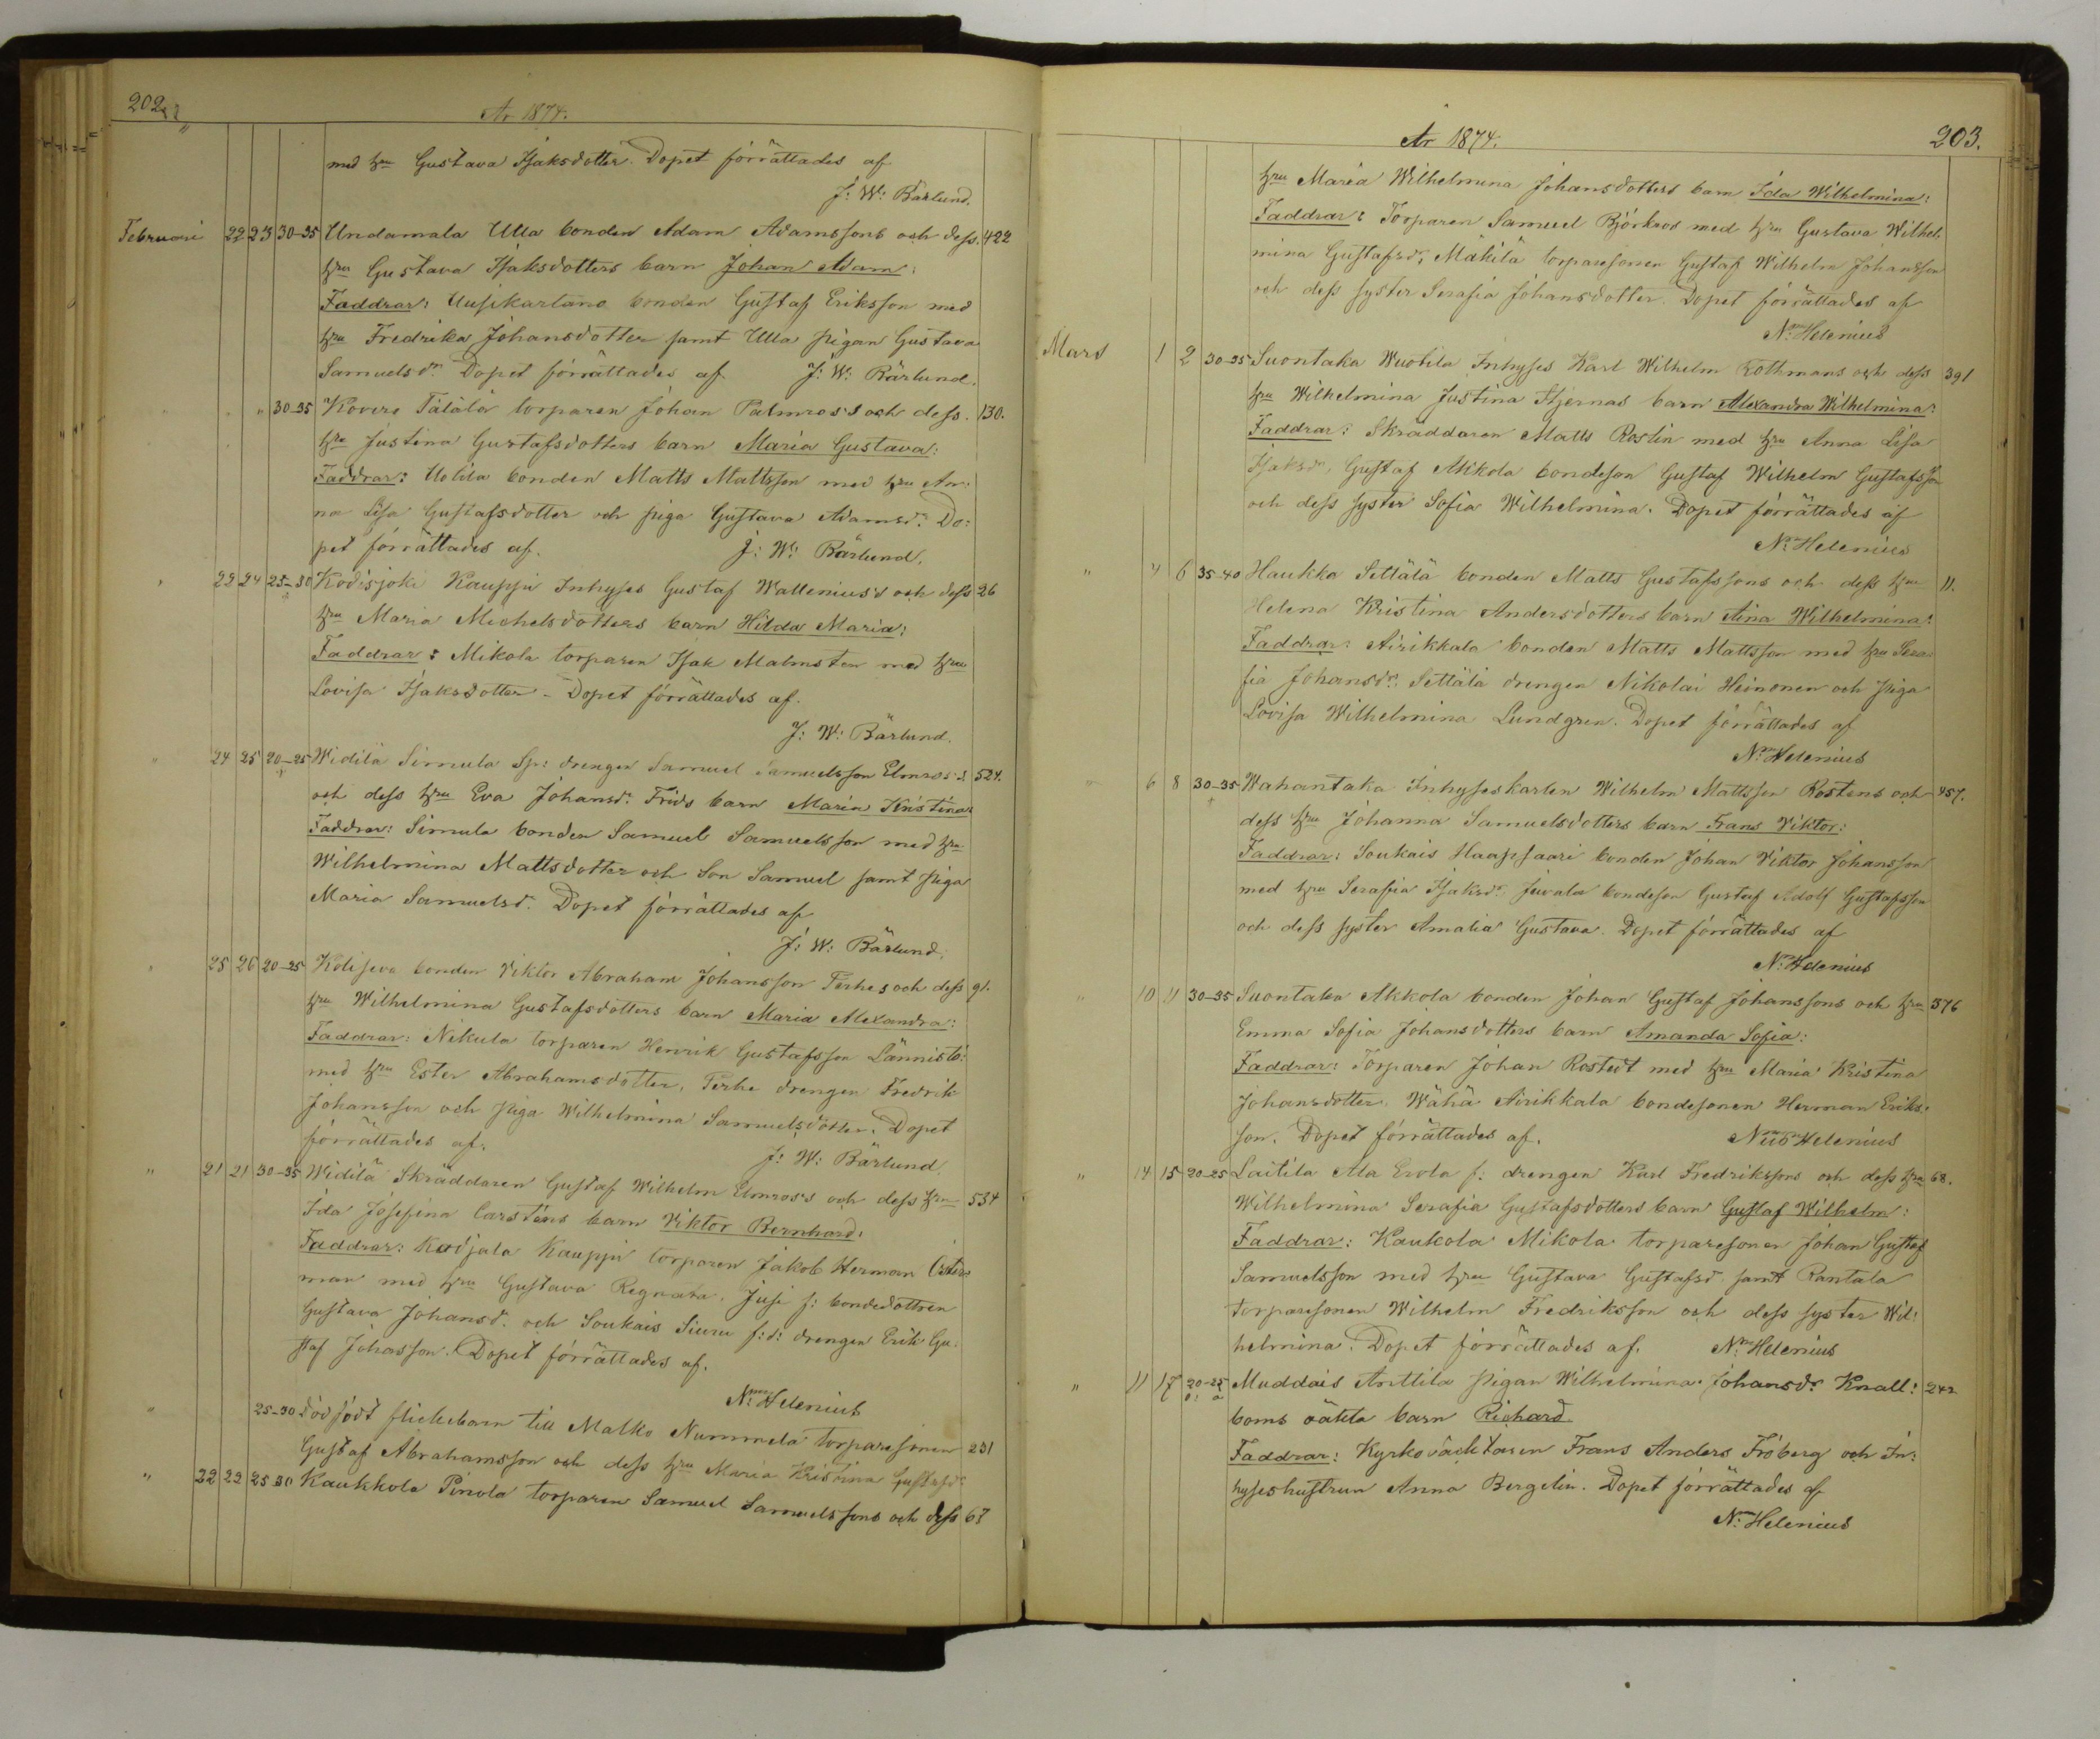 202
År 1874.
med hru Gustava Isaksdotter. Dopet förrättades af
J: W: Bärlund.
Februari 22 23 30-35 Undamala Ulla bonden Adam Adamssons och dess 422
hru Gustava Isaksdotters barn Johan Adam:
Faddrar: Uusikartano bonden Gustaf Eriksson med
hru Fredrika Johansdotter samt Ulla pigan Gustava
Samuelsdr. Dopet förrättades af J: W: Bärlund.
" 30-35 Kovero Tälälä torparen Johan Palmros's och dess 130.
hru Justina Gustafsdotters barn Maria Gustava:
Faddrar: Uolila bonden Matts Mattsson med hru An:
na Lisa Gustafsdotter och piga Gustava Adamsdr. Do:
pet förrättades af. J: W: Bärlund.
" 22 24 25-30 Kodisjoki Kauppi Inhyses Gustaf Wallenius's och dess 26
hru Maria Michelsdotters barn Hilda Maria:
Faddrar: Mikola torparen Isak Malmsten med hru
Lovisa Isaksdotter - Dopet förrättades af.
J: W: Bärlund.
" 24 25 20-25 Widilä Simula Sp: drengen Samuel Samuelsson Elmros's 524.
och dess hru Eva Johansdr. Frids barn Maria Kristina:
Faddrar: Simula bonden Samuel Samuelsson med hru
Wilhelmina Mattsdotter och Son Samuel samt piga
Maria Samuelsd. Dopet förrättades af
J: W: Bärlund.
" 25 26 20-25 Kolisevo bonden Viktor Abraham Johansson Terhes och dess 91.
hru Wilhelmina Gustafsdotters barn Maria Alexandra:
Faddrar: Nikula torparen Henrik Gustafsson Lännistö:
med hru Ester Abrahamsdotter, Terhe drengen Fredrik
Johansson och piga Wilhelmina Samuelsdotter. Dopet
förrättades af.
J: W: Bärlund
" 21 21 30-35 Widilä Skräddaren Gustaf Wilhelm Elmros's och dess hru 534
Ida Josefina Carsténs barn Viktor Bernhard:
Faddrar: Kodjala Kauppi torparen Jakob Herman Öster
man med hru Gustava Regnara. Jusi f: bondedottren
Gustava Johansd. och Soukais Siuru f:d: drengen Erik Gu:
staf Johansson. Dopet förrättades af.
Nm Helenius
" 25-30 Död född flickebarn till Malko Nummela torparesonen 231
Gustaf Abrahamsson och dess hru Maria Kristina Gustafsdr.
" 22 22 25 30 Kaukkola Pinola torparen Samuel Samuelssons och dess 63
År 1874.
203.
hru Maria Wilhelmina Johansdotters barn Ida Wilhelmina:
Faddrar: Torparen Samuel Björkros med hru Gustava Wilhel:
mina Gustafsd. Mäkilä torparesonen Gustaf Wilhelm Johansson
och dess syster Serafia Johansdotter. Dopet förrättades af
Nm Helenius
Mars 1 2 30-35 Suontaka Wuotila Inhyses Karl Wilhelm Rothmans och dess 391
hru Wilhelmina Justina Stjernas barn Alexandra Wilhelmina:
Faddrar: Skräddaren Matts Roslin med hru Anna Lisa
Isaksdr, Gustaf Akkola bondeson Gustaf Wilhelm Gustafsson
och dess syster Sofia Wilhelmina. Dopet förrättades af
Nm Helenius
" 4 6 35-40 Haukka Settälä bonden Matts Gustafssons och dess hru 11.
Helena Kristina Andersdotters barn Aina Wilhelmina:
Faddrar: Airikkala bonden Matts Mattsson med hru Sera:
fia Johansdr. Settälä drengen Nikolai Heinonen och piga
Lovisa Wilhelmina Lundgren. Dopet förrättades af
Nm Helenius
" 6 8 30-35 Wahantaka Inhyseskarlen Wilhelm Mattsson Rostens och 457.
dess hru Johanna Samuelsdotters barn Frans Viktor:
Faddrar: Soukais Haapsaari bonden Johan Viktor Johansson
med hru Serafia Isaksdr. Juvala bondeson Gustaf Adolf Gustafsson
och dess syster Amalia Gustava. Dopet förrättades af
Nm Helenius
" 10 11 30-35 Suontaka Akkola bonden Johan Gustaf Johanssons och hru 376
Emma Sofia Johansdotters barn Amanda Sofia:
Faddrar: Torparen Johan Rostedt med hru Maria Kristina
Johansdotter. Wähä Airikkala bondesonen Herman Eriks:
son. Dopet förrättades af. Nm Helenius
" 14 15 20-25 Laitila Ala Erola f: drengen Karl Fredrikssons och dess hru 68.
Wilhelmina Serafia Gustafsdotters barn Gustaf Wilhelm:
Faddrar: Kaukola Mikola torparesonen Johan Gustaf
Samuelsson med hru Gustava Gustafsd. samt Rantala
torparesonen Wilhelm Fredriksson och dess syster Wil:
helmina. Dopet förrättades af. Nm Helenius
" 11 17 20-25 Muddais Anttila pigan Wilhelmina Johansdr. Knall: 242
boms oäkta barn Richard
Faddrar: Kyrkoväcktaren Frans Anders Fröberg och In:
hyseshustrun Anna Bergelin. Dopet förrättades af
Nm Helenius